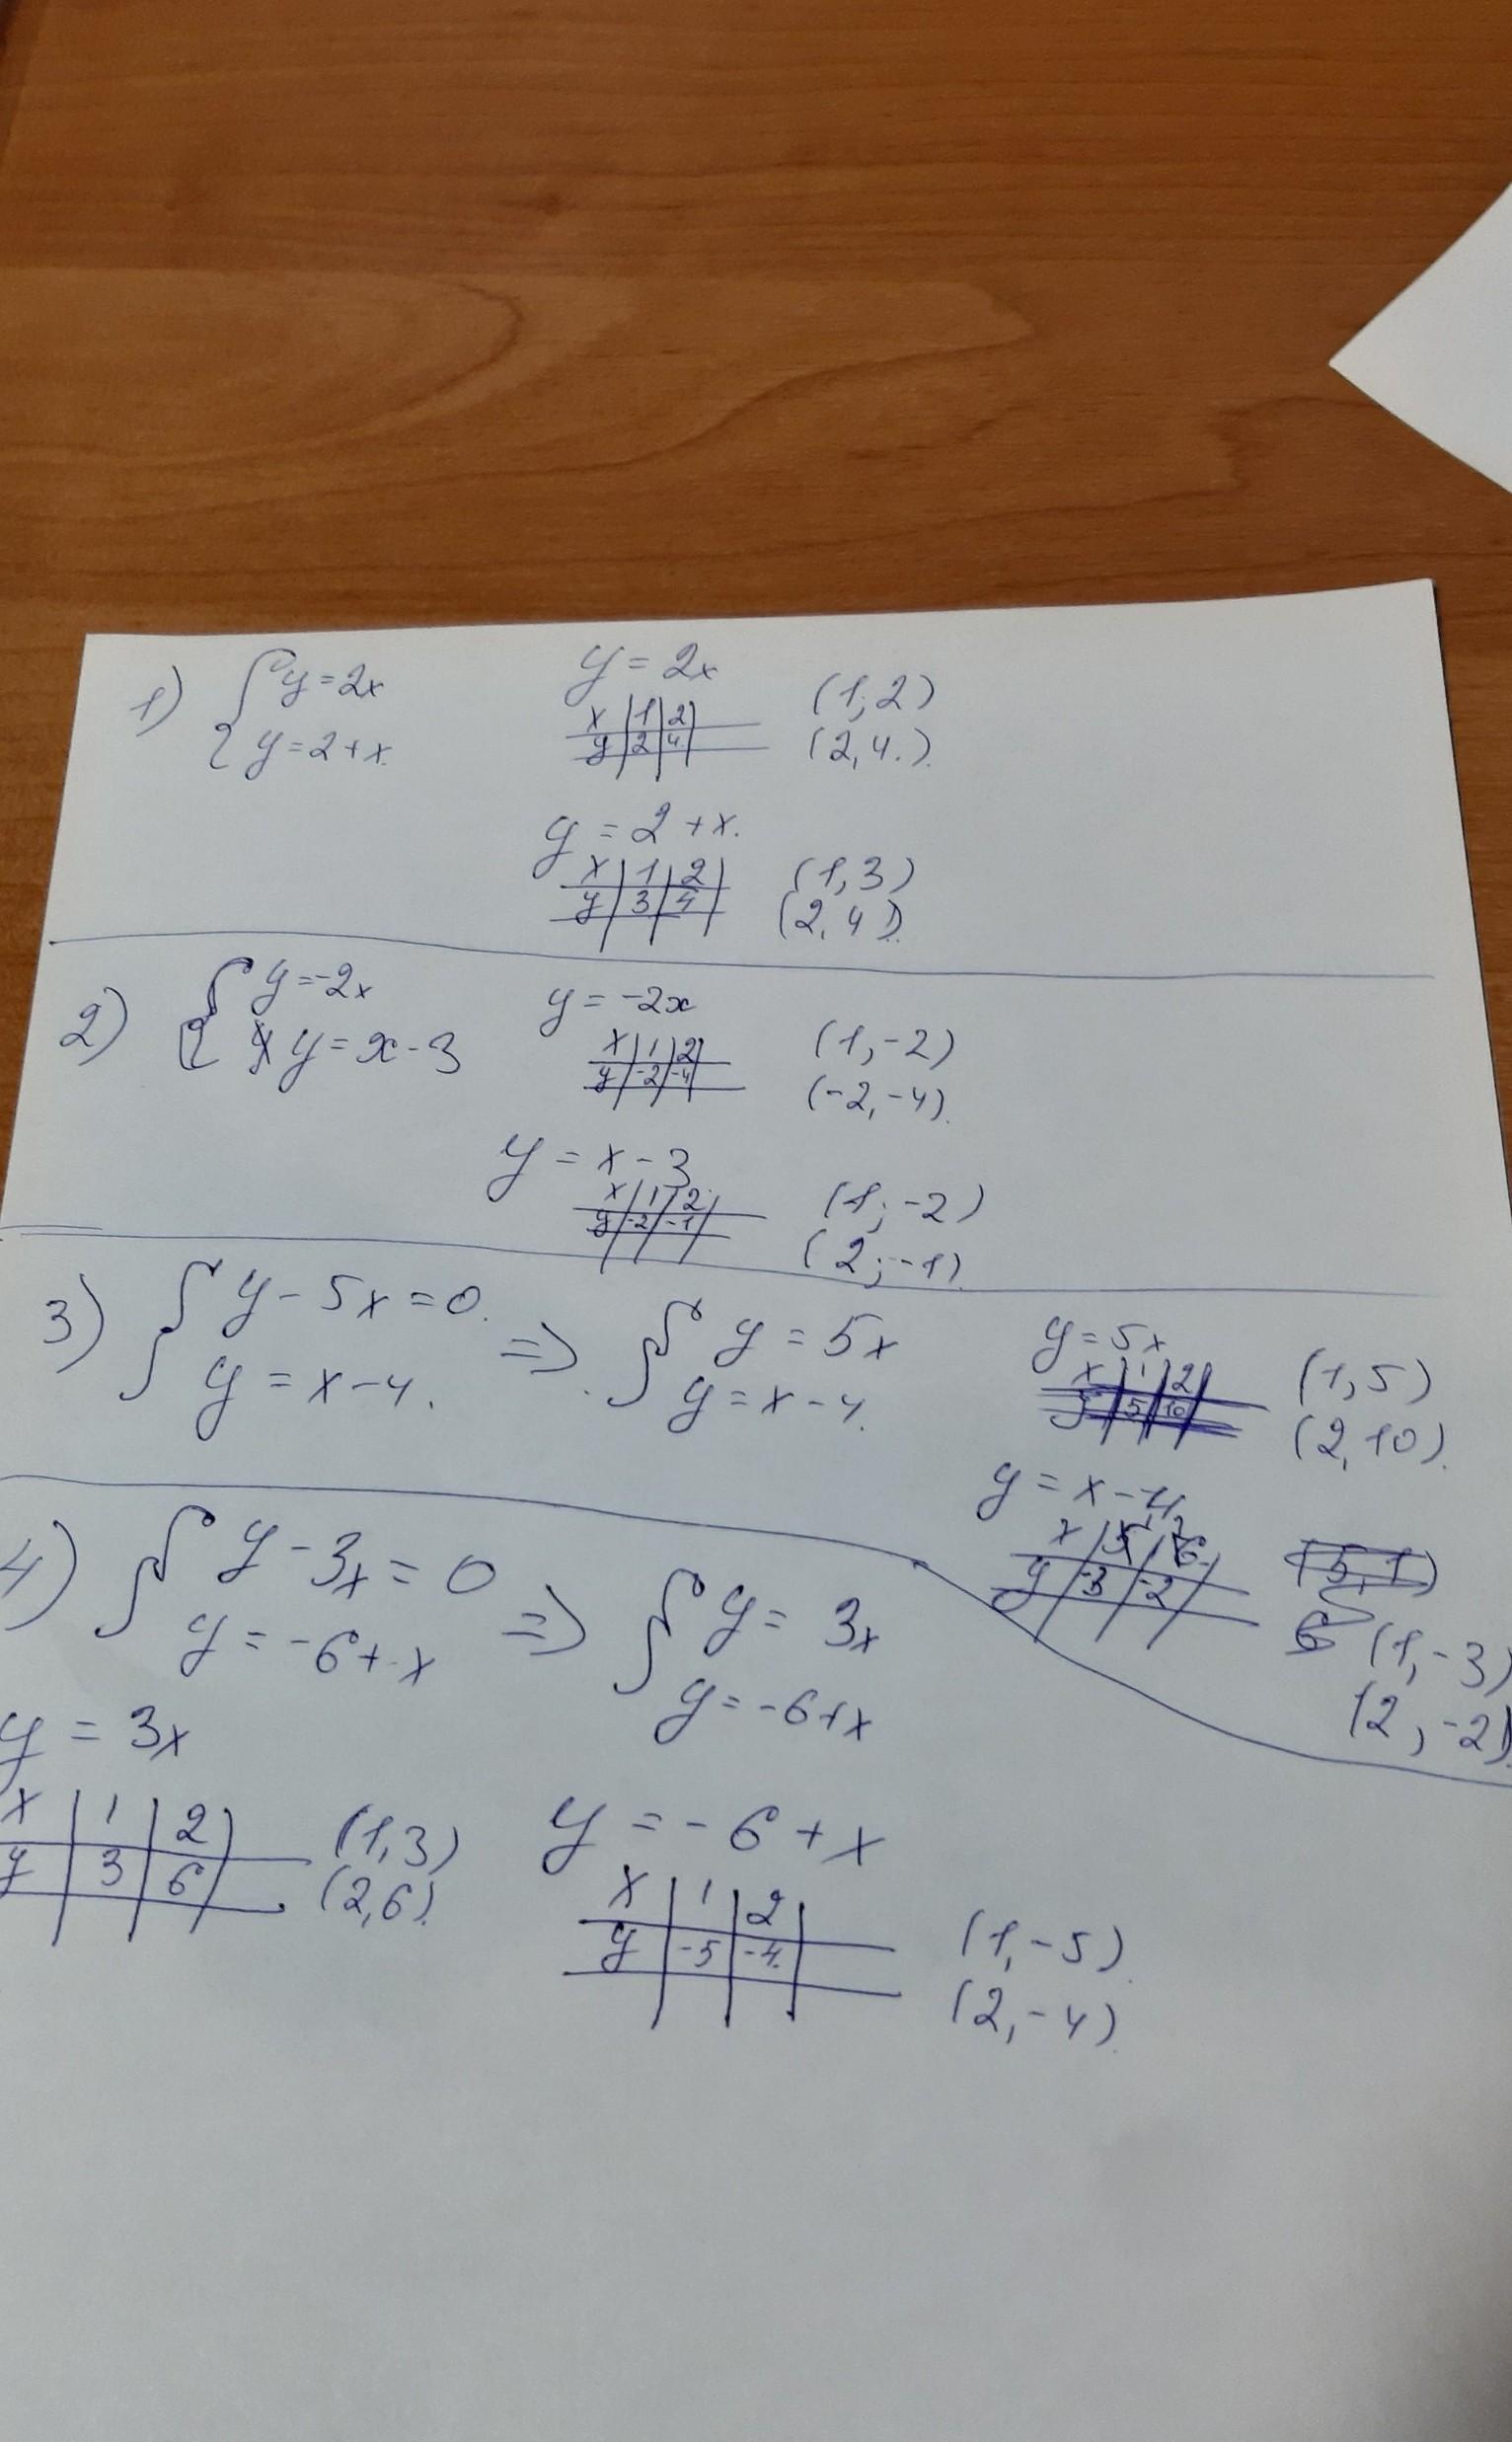 1) { y=2x
y=2+x.
y = 2x
x | 1 | 2
y | 2 | 4
(1;2)
(2,4.).
y = 2 + x.
x | 1 | 2
y | 3 | 4
(1,3)
(2,4).
2) { y=-2x
y = x-3
y = -2x
x | 1 | 2
y | -2 | -4
(1,-2)
(-2,-4).
y = x - 3
x | 1 | 2
y | -2 | -1
(1; -2)
(2; -1).
3) { y - 5x = 0.
y = x - 4.
=> { y = 5x
y = x - 4.
y = 5x
x | 1 | 2
y | 5 | 10
(1,5)
(2,10).
y = x - 4
x | 1 | 2
y | -3 | -2
(5,1)
6
(1,-3)
(2,-2).
4) { y - 3x = 0
y = -6+x
=> { y = 3x
y = -6+x
y = 3x
x | 1 | 2
y | 3 | 6
(1,3)
(2,6).
y = -6 + x
x | 1 | 2
y | -5 | -4.
(1,-5).
(2,-4).